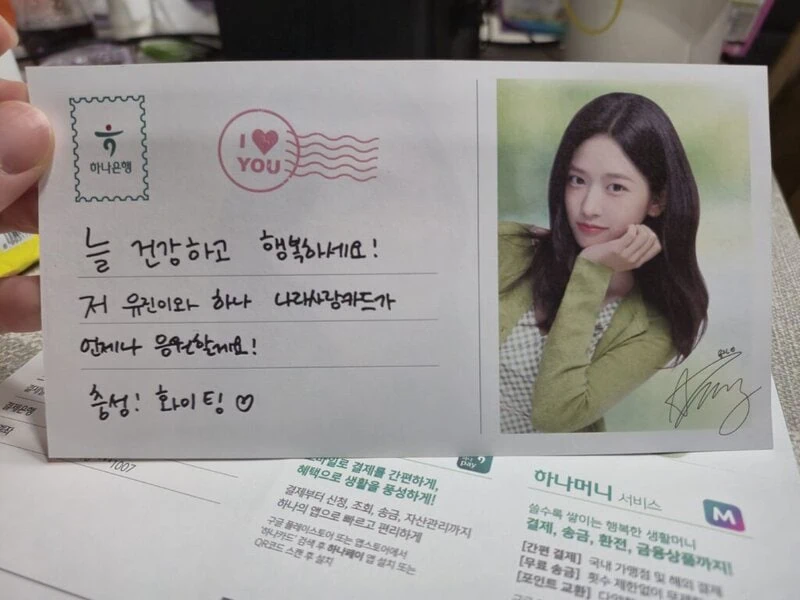 하나은행
I ♥
YOU
늘 건강하고 행복하세요!
저 유진이와 하나 나라사랑카드가
언제나 응원할게요!
충성! 화이팅 ♡
결제은행
1007
pay
모바일로 결제를 간편하게,
혜택으로 생활을 풍성하게!
결제부터 신청, 조회, 송금, 자산관리까지
하나의 앱으로 빠르고 편리하게
구글 플레이스토어 또는 앱스토어에서
'하나카드' 검색 후 하나페이 앱 설치 또는
QR코드 스캔 후 설치
하나머니 서비스
M
쓸수록 쌓이는 행복한 생활머니
결제, 송금, 환전, 금융상품까지!
[간편 결제] 국내 가맹점 및 해외 결제
[무료 송금] 횟수 제한없이 무제한
[포인트 교환]